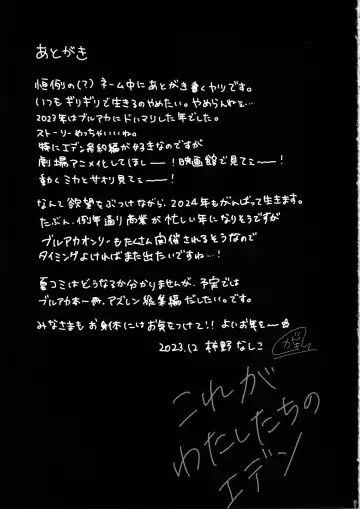 あとがき
恒例の(?)ネーム中にあとがき書くヤツです。
いつもギリギリで生きるのやめたい。やめらんねェ…
2023年はブルアカにドハマリした年でした。
ストーリーめっちゃいいね。
特にエデン条約編が好きなのですが
劇場アニメ化してほしー!映画館で見てェー!
動くミカとサオリ見てェー!
なんて欲望をぶつけながら、2024年もがんばって生きます。
たぶん、例年通り商業が忙しい年になりそうですが
ブルアカオンリーもたくさん開催されるそうなので
タイミングよければまた出たいですね…!
夏コミはどうなるか分かりませんが、予定では
ブルアカ本一冊、アズレン総集編だしたいっす。
みなさまもお身体にはお気をつけて!!よいお年をー
2023.12 柿野なしこ
これが
わたしたちの
エデン